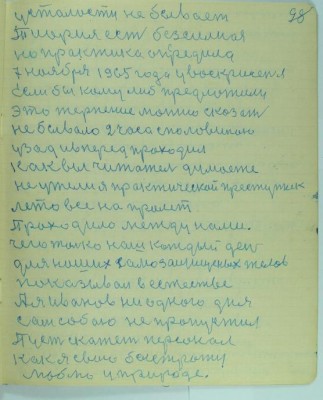 98
усталости не бывает
Теория ест безсилмая
но практика определила
7 ноября 1965 года у воскрисенл
Если бы кому либ предложили
Это терпение можно сказат
не бывало 2 часа споловиною
узад и вперед проходил
Как вы читател думаете
не ужели я практической преступник
лето все на пролет.
Проходило между нами.
чего только наш каждый ден
для наших самозащищеных телов
показывал в естестве
А я Иванов ни одного дня
сам собою не пропустил
Пуст скажет персонал
как я свою быстроту
люблю у природе.